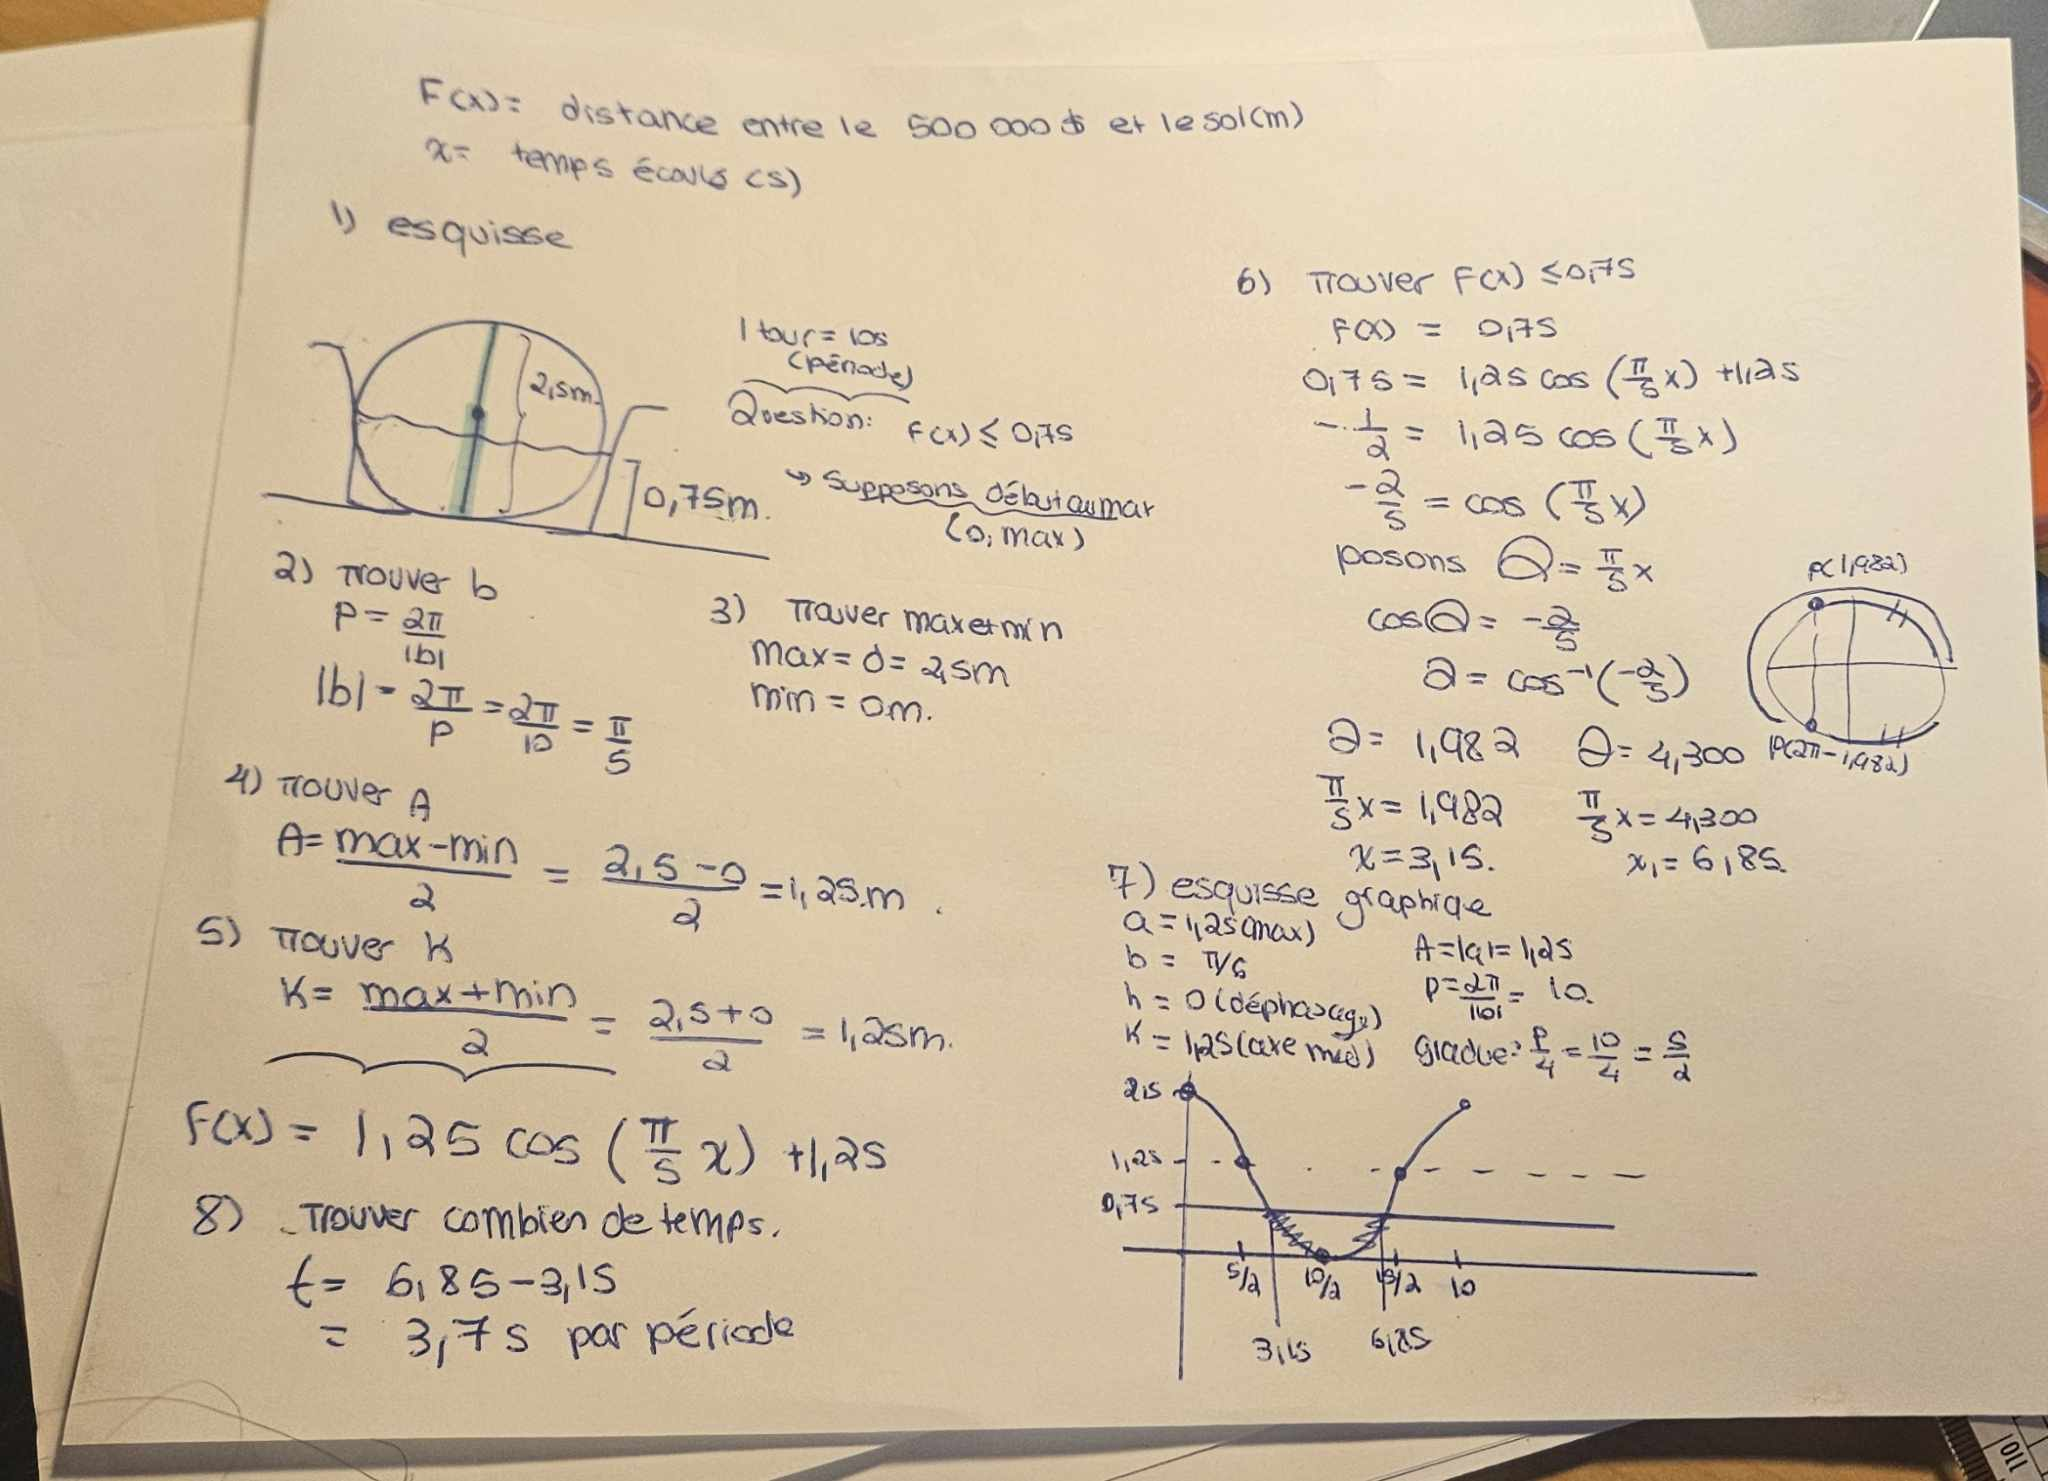 F(x) = distance entre le 500 000 $ et le sol (m)
x = temps écoulé (s)
1) esquisse
2,5m.
0,75m.
1 tour = 10s
(période)
Question: F(x) ≤ 0,75
↳ Supposons début au max
(0, max)
2) Trouver b
P = 2π/|b|
|b| = 2π/P = 2π/10 = π/5
3) Trouver max et min
max = d = 2,5m
min = 0m.
4) Trouver A
A = (max - min)/2 = (2,5 - 0)/2 = 1,25m.
5) Trouver K
K = (max + min)/2 = (2,5 + 0)/2 = 1,25m.
F(x) = 1,25 cos (π/5 x) + 1,25
8) Trouver combien de temps.
t = 6,85 - 3,15
= 3,7 s par période
6) Trouver F(x) ≤ 0,75
F(x) = 0,75
0,75 = 1,25 cos (π/5 x) + 1,25
-1/2 = 1,25 cos (π/5 x)
-2/5 = cos (π/5 x)
posons θ = π/5 x
cos θ = -2/5
θ = cos⁻¹(-2/5)
P(1,982)
P(2π - 1,982)
θ = 1,982 θ = 4,300
π/5 x = 1,982 π/5 x = 4,300
x = 3,15. x₁ = 6,85.
7) esquisse graphique
a = 1,25 (max) A = |a| = 1,25
b = π/5 P = 2π/|b| = 10.
h = 0 (déphasage)
K = 1,25 (axe med) gradue: P/4 = 10/4 = 5/2
2,5
1,25
0,75
5/2 10/2 15/2 10
3,15 6,85